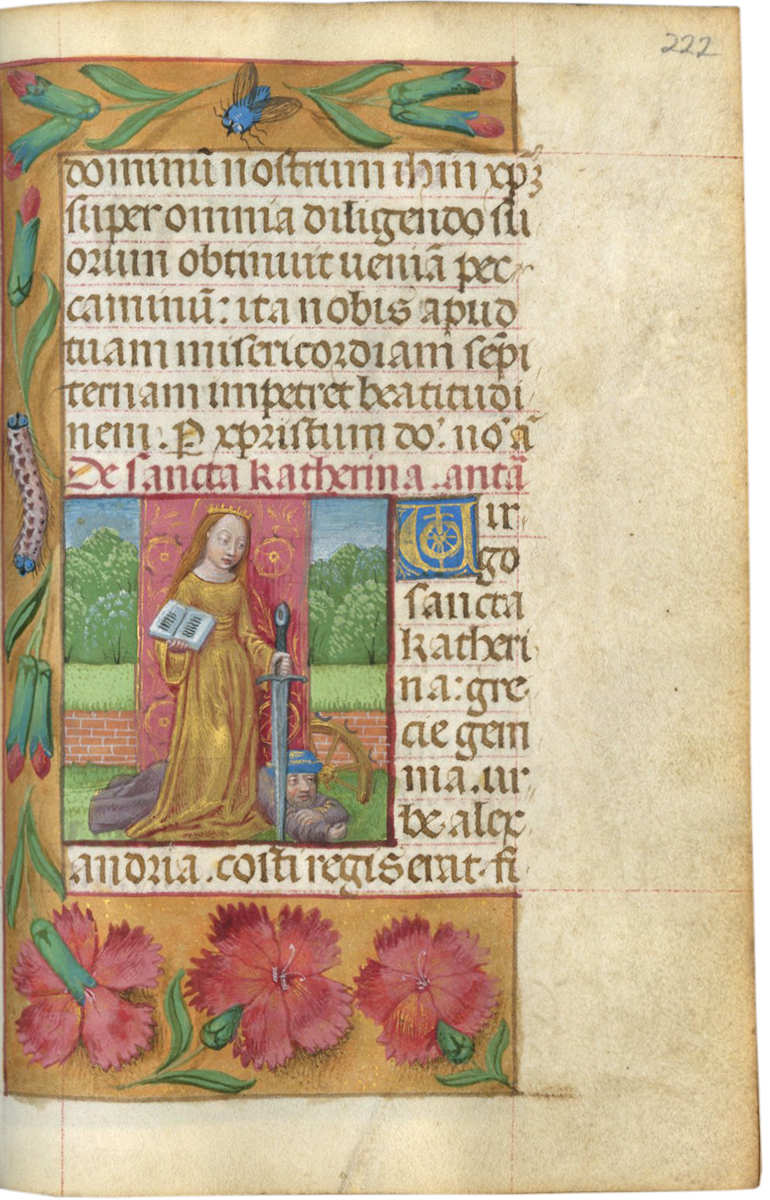 222
dominū nostrum ihm xp̄ꝫ
super omnia diligendo su
orum obtinuit ueniā pec
caminū: ita nobis apud
tuam misericordiam sēpi
ternam impetret beatitudi
nem. P xpristum do᷑. nō ā
De sancta katherina. antā
Uir
go
sancta
katheri
na: gre
cie gem
ma. ur
be alex
andria. costi regis erat fi